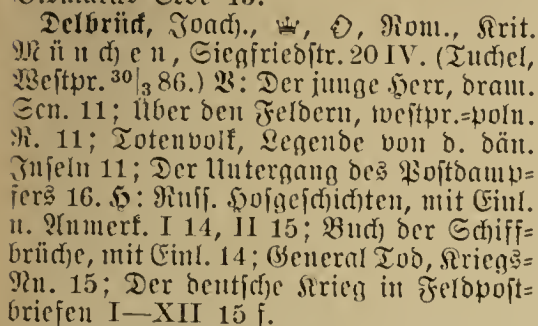 Delbrück, Joach., ♕, Rom., Krit.
München, Siegfriedstr. 20 IV. (Tuchel,
Westpr. 30|3 86.) V: Der junge Herr, dram.
Scn. 11; Über den Feldern, westpr.=poln.
R. 11; Totenvolk, Legende von d. dän.
Inseln 11; Der Untergang des Postdamp=
fers 16. H: Russ. Hofgeschichten, mit Einl.
u. Anmerk. I 14, II 15; Buch der Schiff=
brüche, mit Einl. 14; General Tod, Kriegs=
Nn. 15; Der deutsche Krieg in Feldpost=
briefen I—XII 15 f.